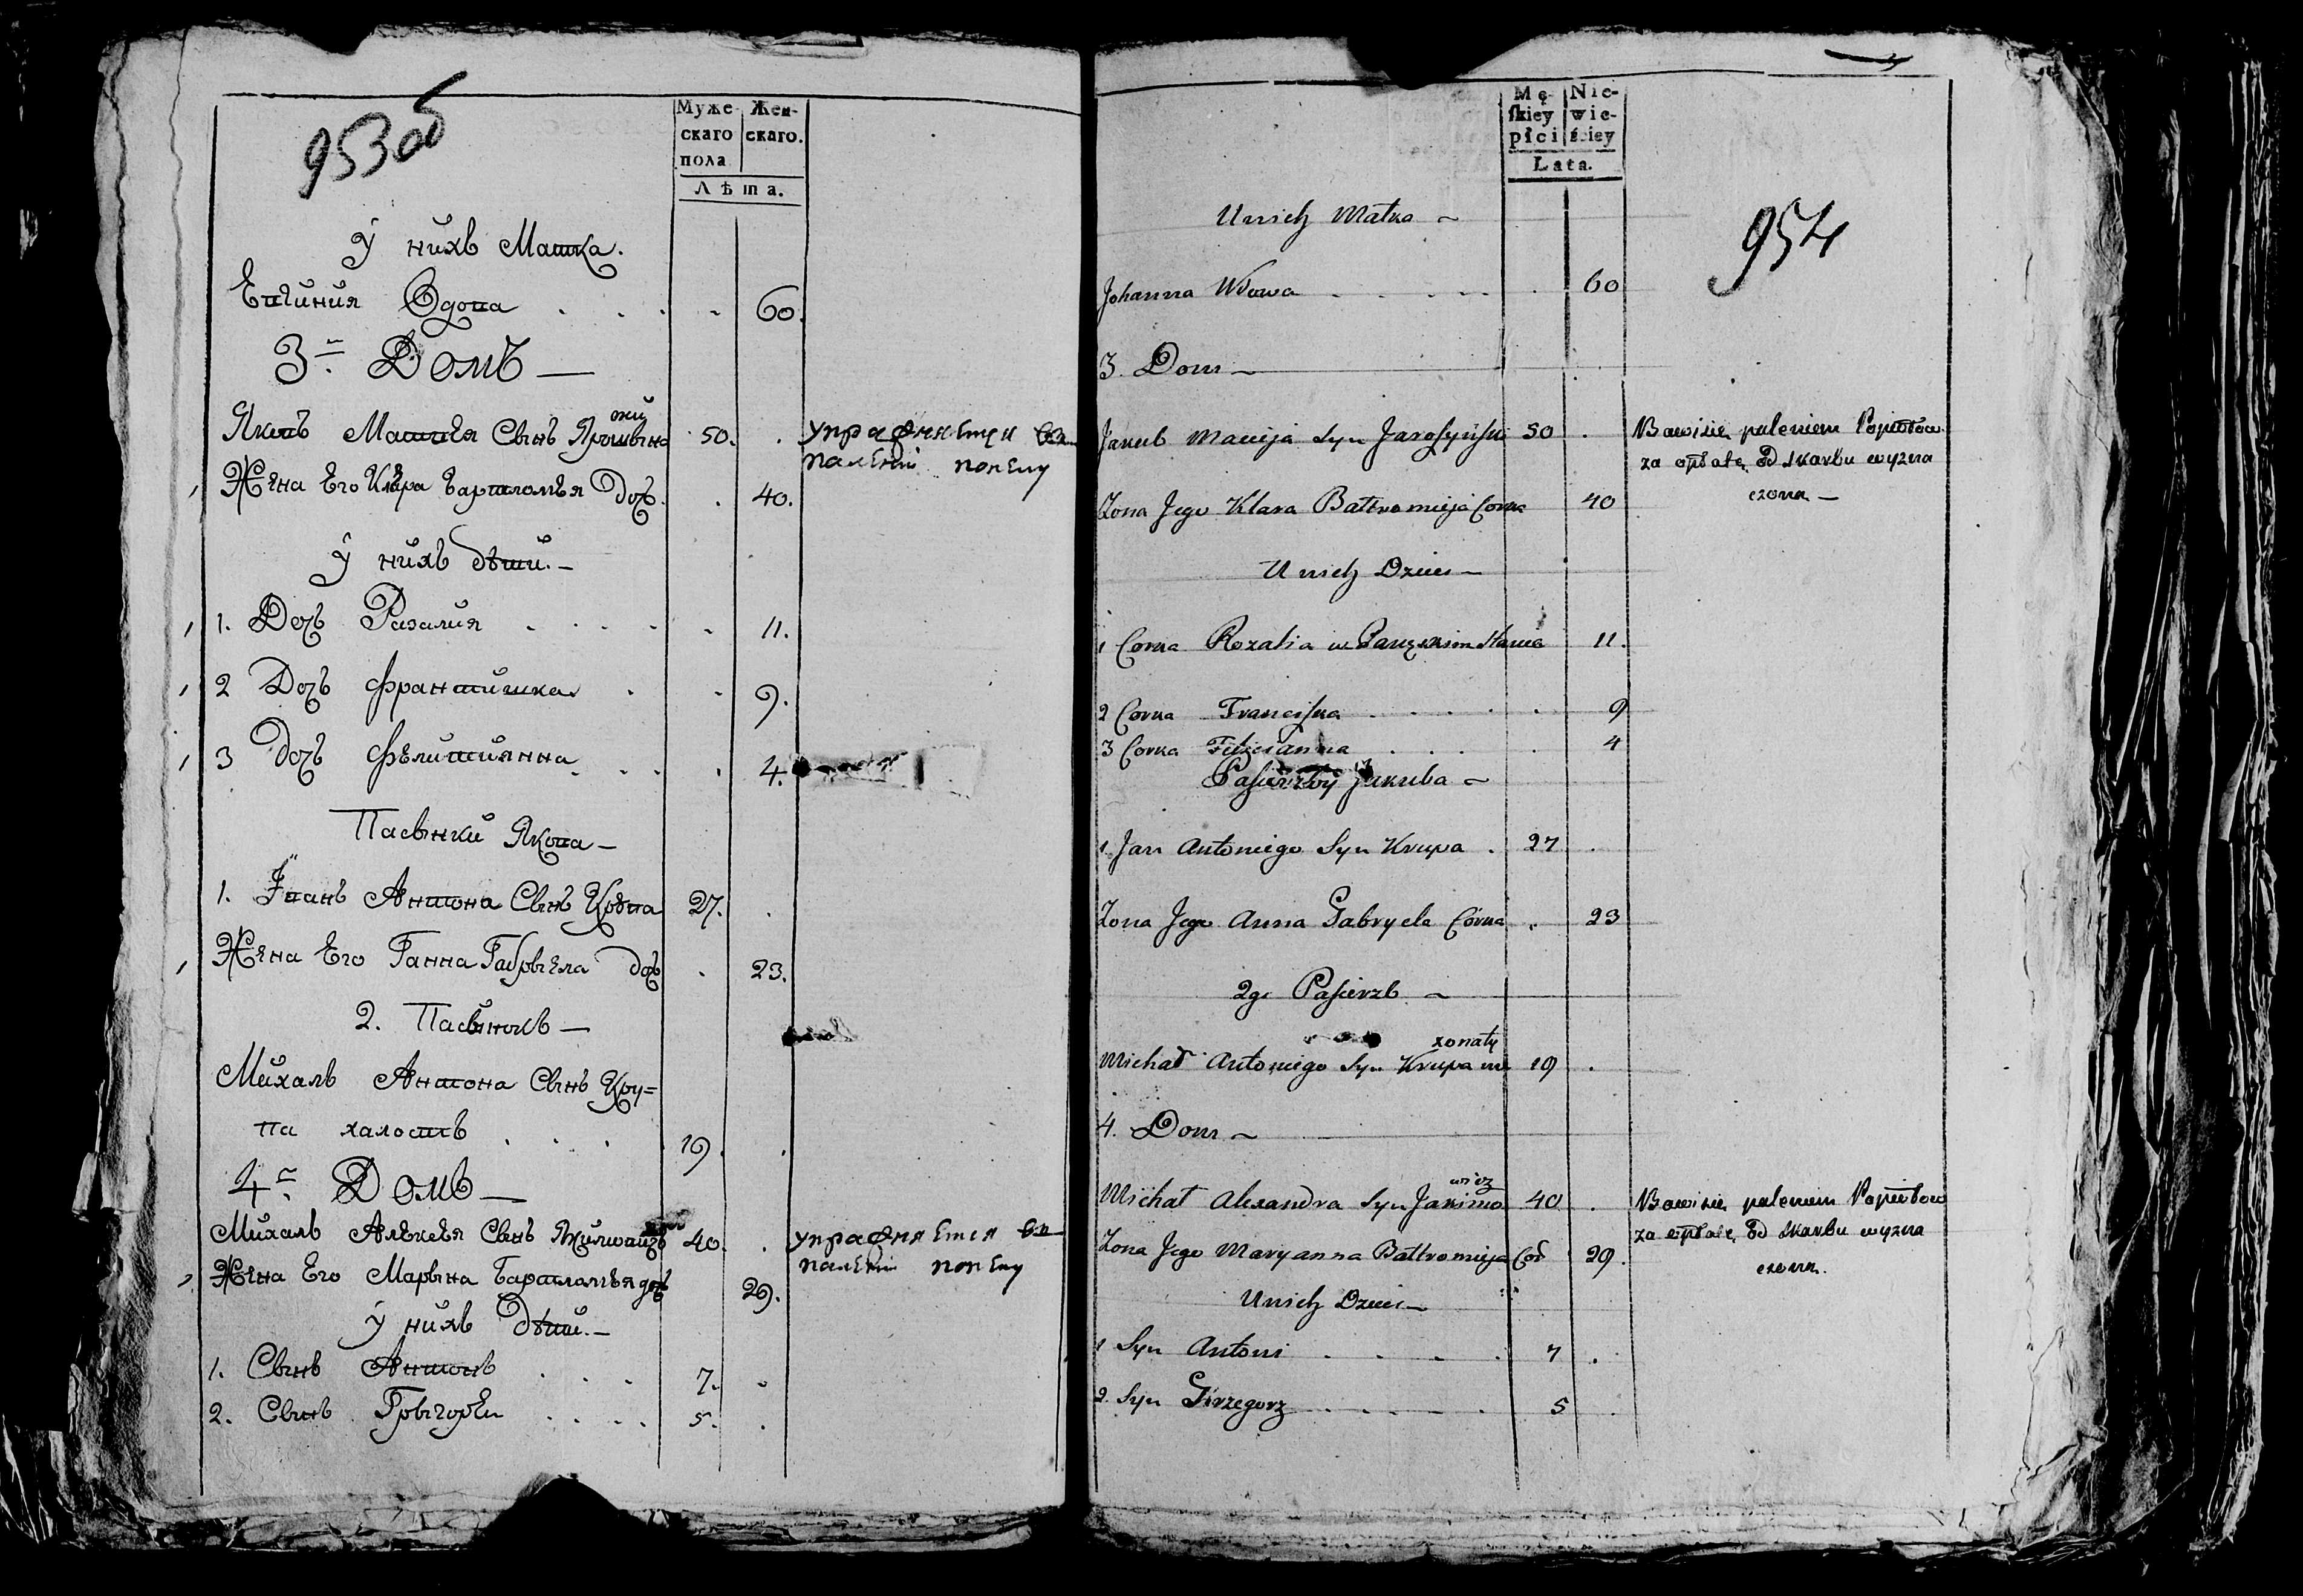 953 об
Муже-
скаго
пола
Жен-
скаго.
Лѣта.
У нихъ Матка.
Вдова
60.
3й Домъ —
Якубъ Матѣя Сынъ
50.
Жена Его Клара Бартломѣя Дочь.
40.
У нихъ дѣти. —
1. Дочь Разалия
11.
2 Дочь Франтишка
9.
3 Дочь Фѣлитиянна
4.
Пасынки Якопа —
1. Антона Сынъ Крупа
27.
Жена Его Ганна Габрыела дочь
23.
2. Пасынокъ —
Михалъ Антона Сынъ Кру=
па халостъ
19.
4й Домъ —
Михалъ Сынъ
40.
Жена Его Марына Бартломѣя дочь
29.
У нихъ Дѣти. —
1. Сынъ Антонъ
7.
2. Сынъ Грыгорѣи
5.
Mę-
skiey
płci
Nie-
wie-
ściey
Lata.
954
U nich Matka ~
Johanna Wdowa
60
3. Dom —
Jakub Macieja Syn Jarosyński
50
Bawi się paleniem Popiołow
za opłatę od Skarbu wyzna
czona —
Zona Jego Klara Baltromieja Corka
40
U nich Dzieci —
1 Corka Rozalia w Panięskim Stanie
11.
2 Corka Franciszka
9
3 Corka Felicianna
4
Pasierzby Jakuba ~
1. Jan Antoniego Syn Krupa
27
Zona Jego Anna Gabryela Córka
23
2gi Pasierzb ~
zonaty
Michał Antoniego Syn Krupa nie
19
4. Dom ~
wicz
Michał Alexandra Syn Jakimo
40
Bawi się paleniem Popiołow
za opłatę od Skarbu wyzna
czona.
Zona Jego Maryanna Baltromieja Cor
29.
U nich Dzieci —
1 Syn Antoni
7
2. Syn Grzegorz
5